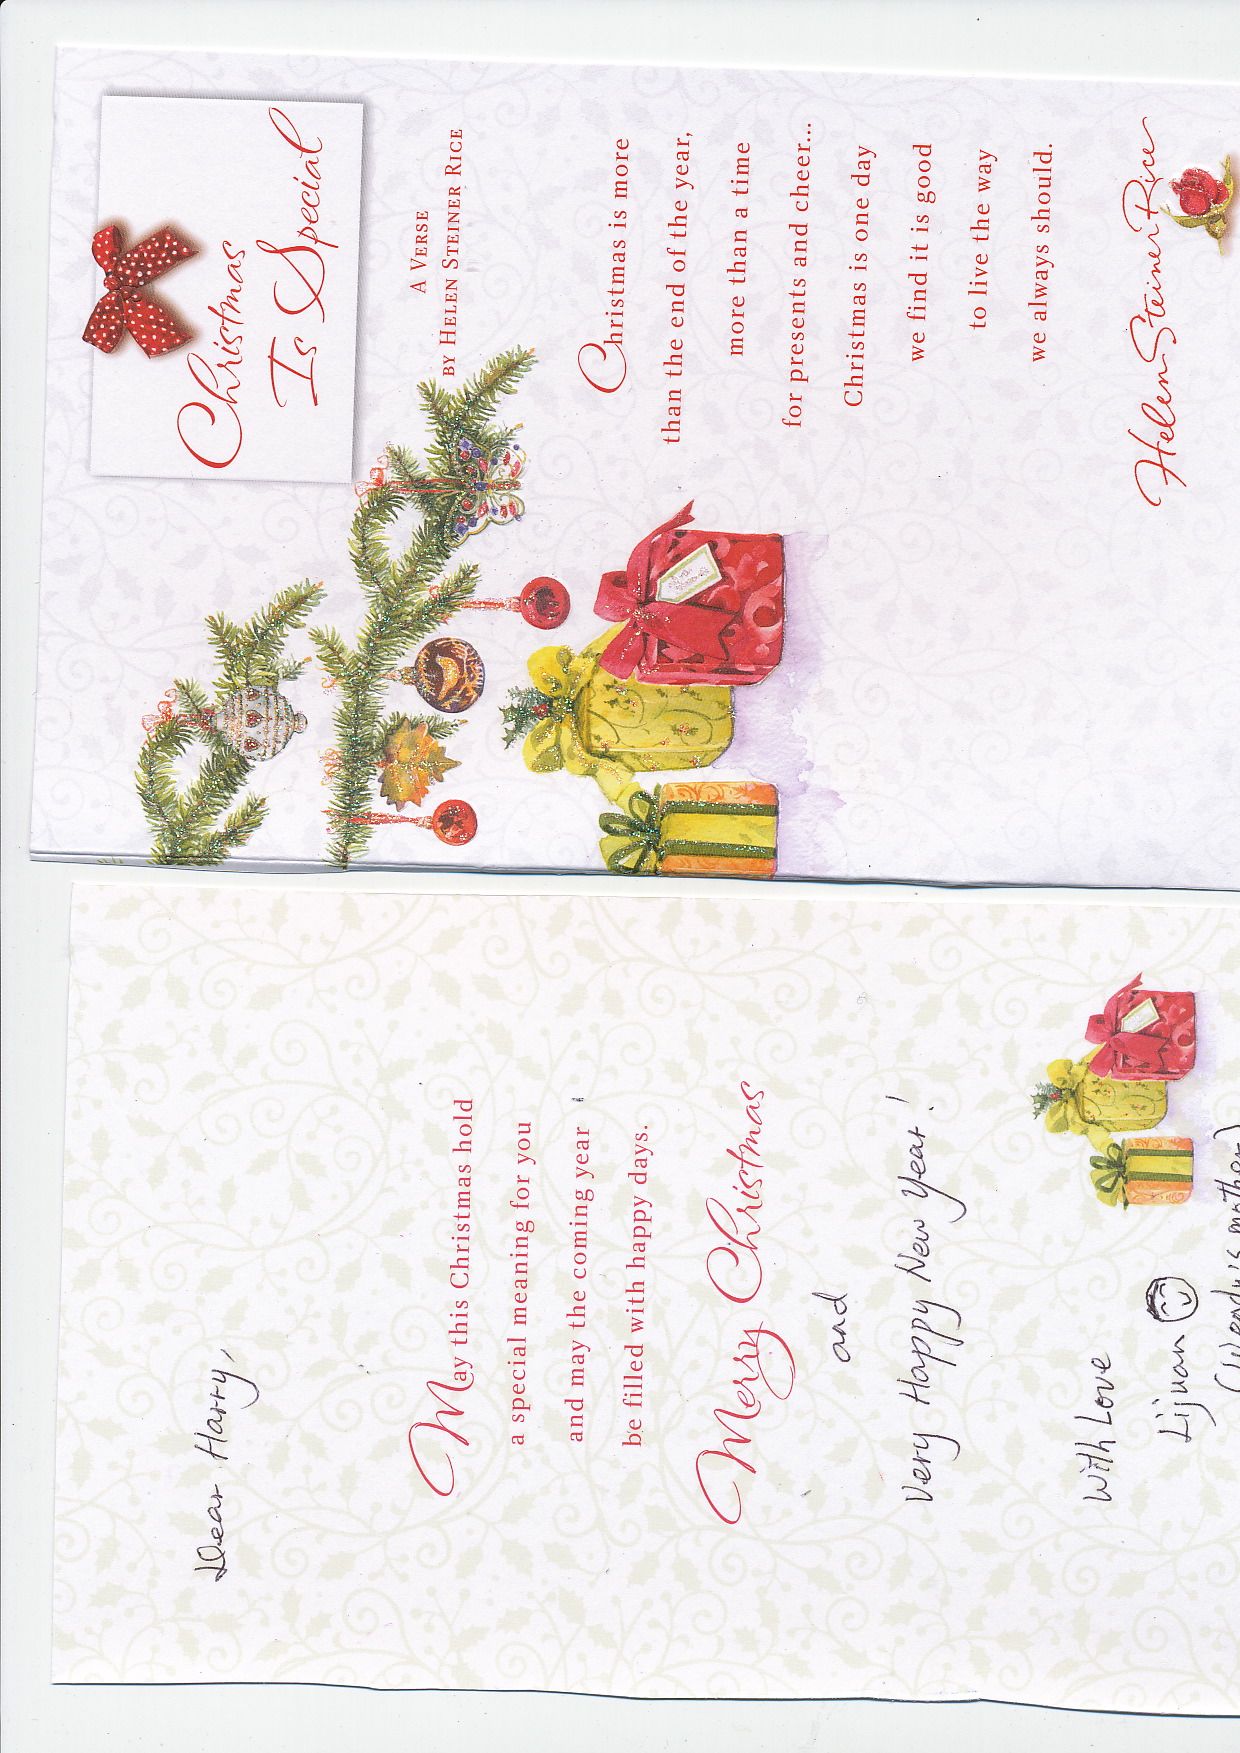 Christmas
Is Special
A VERSE
BY HELEN STEINER RICE
Christmas is more
than the end of the year,
more than a time
for presents and cheer...
Christmas is one day
we find it is good
to live the way
we always should.
Helen Steiner Rice
Dear Harry,
May this Christmas hold
a special meaning for you
and may the coming year
be filled with happy days.
Merry Christmas
and
Very Happy New Year!
With Love
Lijuan
(Wendy's mother)